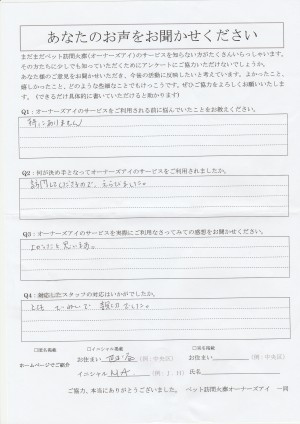 あなたのお声をお聞かせください
まだまだペット訪問火葬(オーナーズアイ)のサービスを知らない方がたくさんいらっしゃいます。
その方たちに少しでも知っていただくためにアンケートにご協力いただけないでしょうか。
あなた様のご意見をお聞かせいただき、今後の活動に反映したいと考えています。よかったこと、
嬉しかったこと、どのような些細なことでもけっこうです。ぜひご協力をよろしくお願いいたしま
す。(できるだけ具体的に書いていただけると助かります)
Q1:オーナーズアイのサービスをご利用される前に悩んでいたことをお教えください。
特にありません
Q2:何が決め手となってオーナーズアイのサービスをご利用されましたか。
訪問してくださるので、えらびました。
Q3:オーナーズアイのサービスを実際にご利用なさってみての感想をお聞かせください。
よかったと思います。
Q4:対応したスタッフの対応はいかがでしたか。
とても ていねいで 親切でした。
□匿名掲載 □イニシャル掲載 □実名掲載
ホームページでご紹介
お住まい (例:中央区) お住まい (例:中央区)
イニシャル N.A. (例:J.H) 氏名
ご協力、本当にありがとうございました。 ペット訪問火葬オーナーズアイ 一同